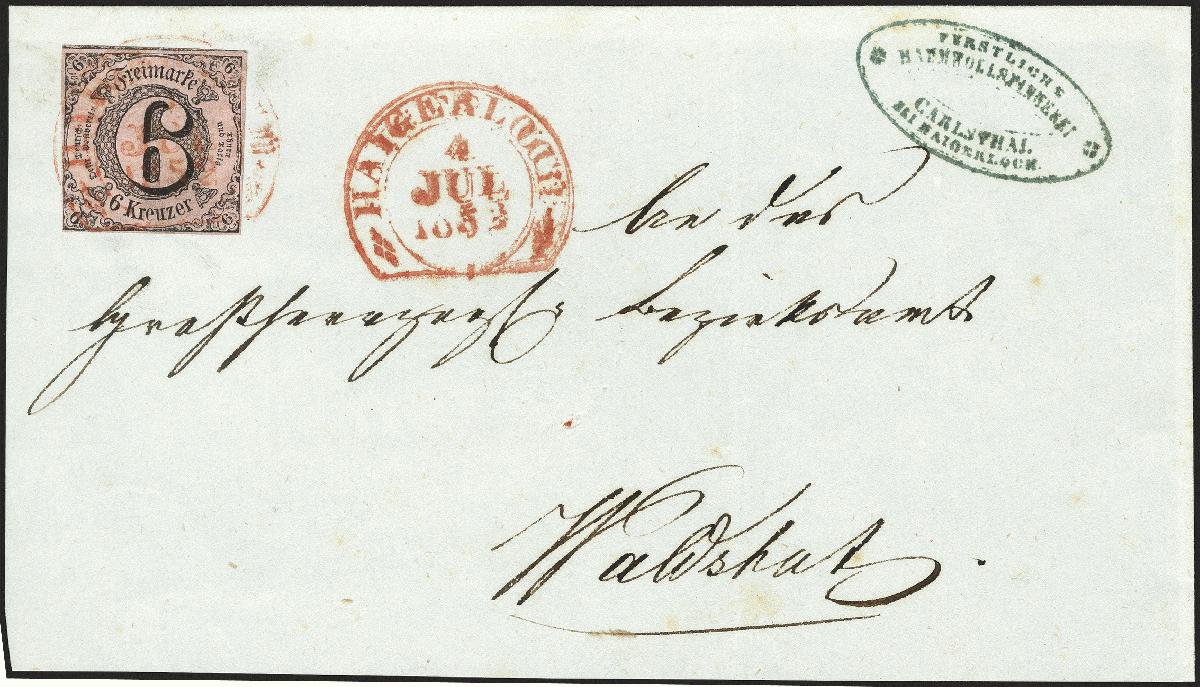 Freimarke
6
6 Kreuzer
6 6 6 6
HAIGERLOCH
4
JUL
185
FÜRSTLICHE
BAUMWOLLSPINNEREI
CARLSTHAL
BEI HAIGERLOCH.
Bezirksamt
Waldshut.